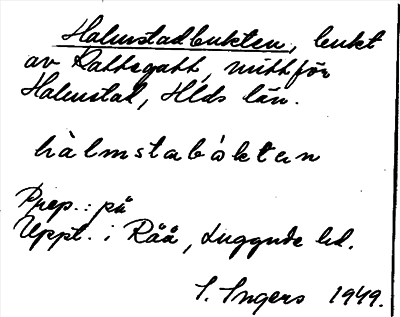 Halmstadbukten, bukt
av Kattegatt, mitt för
Halmstad, Hlds län.
hàlmstabóktan
Prep.: på
Uppt. i Råå, Luggude hd.
I. Ingers 1949.